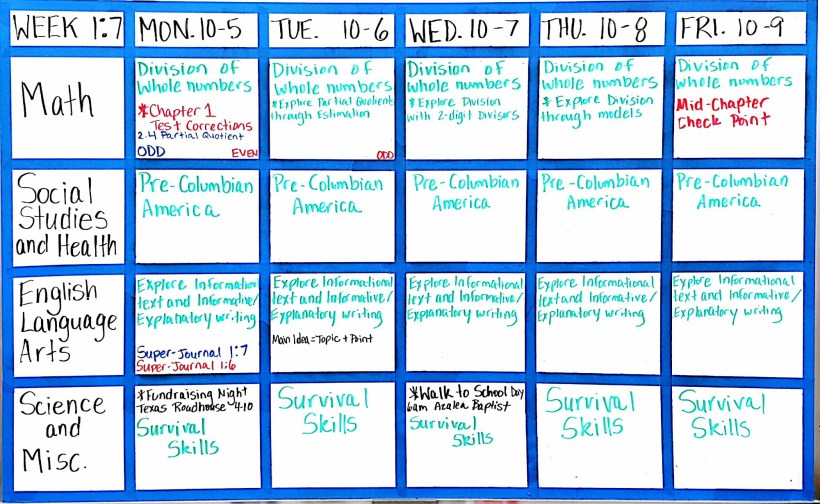 WEEK 1:7
MON. 10-5
TUE. 10-6
WED. 10-7
THU. 10-8
FRI. 10-9
Math
Division of
whole numbers
*Chapter 1
Test Corrections
2.4 Partial Quotient
ODD EVEN
Division of
whole numbers
*Explore Partial Quotients
through Estimation
ODD
Division of
whole numbers
*Explore Division
with 2-digit Divisors
Division of
whole numbers
*Explore Division
through models
Division of
whole numbers
Mid-Chapter
Check Point
Social
Studies
and Health
Pre-Columbian
America
Pre-Columbian
America
Pre-Columbian
America
Pre-Columbian
America
Pre-Columbian
America
English
Language
Arts
Explore Informational
text and Informative/
Explanatory writing
Super-Journal 1:7
Super-Journal 1:6
Explore Informational
text and Informative/
Explanatory writing
Main Idea=Topic + Point
Explore Informational
text and Informative/
Explanatory writing
Explore Informational
text and Informative/
Explanatory writing
Explore Informational
text and Informative/
Explanatory writing
Science
and
Misc.
*Fundraising Night
Texas Roadhouse 4-10
Survival
Skills
Survival
Skills
*Walk to School Day
6am Azalea Baptist
Survival
Skills
Survival
Skills
Survival
Skills